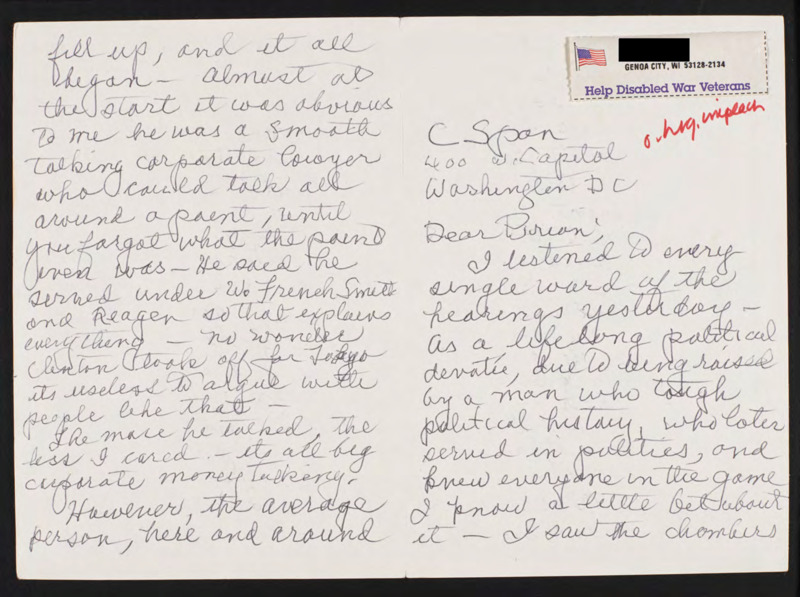 GENOA CITY, WI 53128-2134
Help Disabled War Veterans
o. hrg. impeach
C Span
400 N. Capitol
Washington D C
Dear Brian;
I listened to every
single word of the
hearings yesterday —
as a lifelong political
devotie, due to being raised
by a man who tough
political history, who later
served in politics, and
knew everyone in the game
I know a little bet about
it — I saw the chambers
fill up, and it all
began — almost at
the start it was obvious
to me he was a smooth
talking corporate lawyer
who could talk all
around a point, until
you forgot what the point
even was — He said he
served under Wm French Smith
and Reagen so that explains
everything — no wonder
Clinton took off for Tokyo
its useless to argue with
people like that —
The more he talked, the
less I cared — its all big
corporate money talking.
However, the average
person, here and around